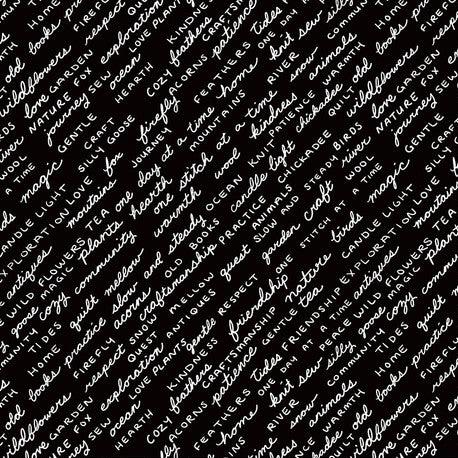 FIREFLY
respect
exploration
LOVE PLANTS
KINDNESS
feathers
CRAFTSMANSHIP
patience
tides
ONE DAY
knit sew silly
COMMUNITY
HOME
books practice
old
wildflowers
love GARDEN
NATURE FOX
journey SEW
ocean
HEARTH
COZY
ACORNS
FEATHERS
home
RIVER
snow
animals
WARMTH
QUILT
GENTLE
CRAFT
SILLY GOOSE
firefly
JOURNEY
MOUNTAINS
one day at a time
kindness
PATIENCE
chickadee
magic
mountains fox
hearth
one stitch at a time
wool
KNIT
candle light
CHICKADEE
STEADY BIRDS
river
WOOL
CANDLE LIGHT
EXPLORATION LOVE
TEA
plants
warmth
steady
OCEAN
PRACTICE
ANIMALS
SLOW AND STEADY
garden craft
ONE STITCH AT A TIME
antiques
WILD FLOWERS
MAGIC
community
mellow
OLD BOOKS
craftsmanship
quest
nature
birds
goose cozy
quilt
slow and
acorns
SNOW
QUEST
ANTIQUES
MELLOW
RESPECT
friendship
tea
EXPLORATION
TIDES
practice
FIREFLY
respect
exploration
LOVE PLANTS
gentle
KINDNESS
feathers
CRAFTSMANSHIP
patience
GENTLE
FRIENDSHIP
ONE DAY AT A TIME
PEACE
WILD FLOWERS
MAGIC
HOME
books
old
wildflowers
love GARDEN
NATURE FOX
journey SEW
ocean
HEARTH
COZY
ACORNS
FEATHERS
home
tides
knit sew silly
goose cozy
COMMUNITY
RIVER
snow
animals
WARMTH
QUILT